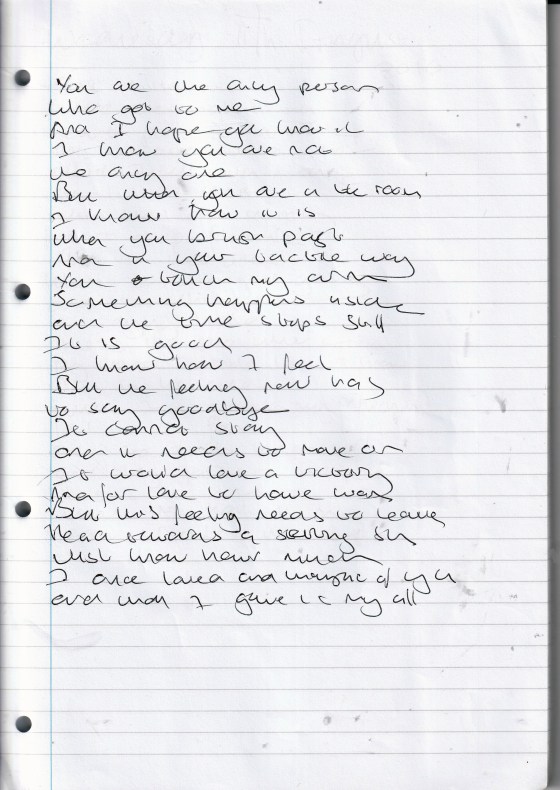 You are the only person
Who got to me
And I hope you know it
I know you are not
the only one
But when you are in the room
I know how it is
When you brush past
And in your tactile way
You touch my arm
Something happens inside
and the time stops still
It is good
I know how I feel
But the feeling now has
to say goodbye
It cannot stay
and it needs to move on
It would love a victory
And for love to have won
But this feeling needs to leave
Head towards a setting sun
Just know how much
I once loved and thought of you
and that I gave it my all